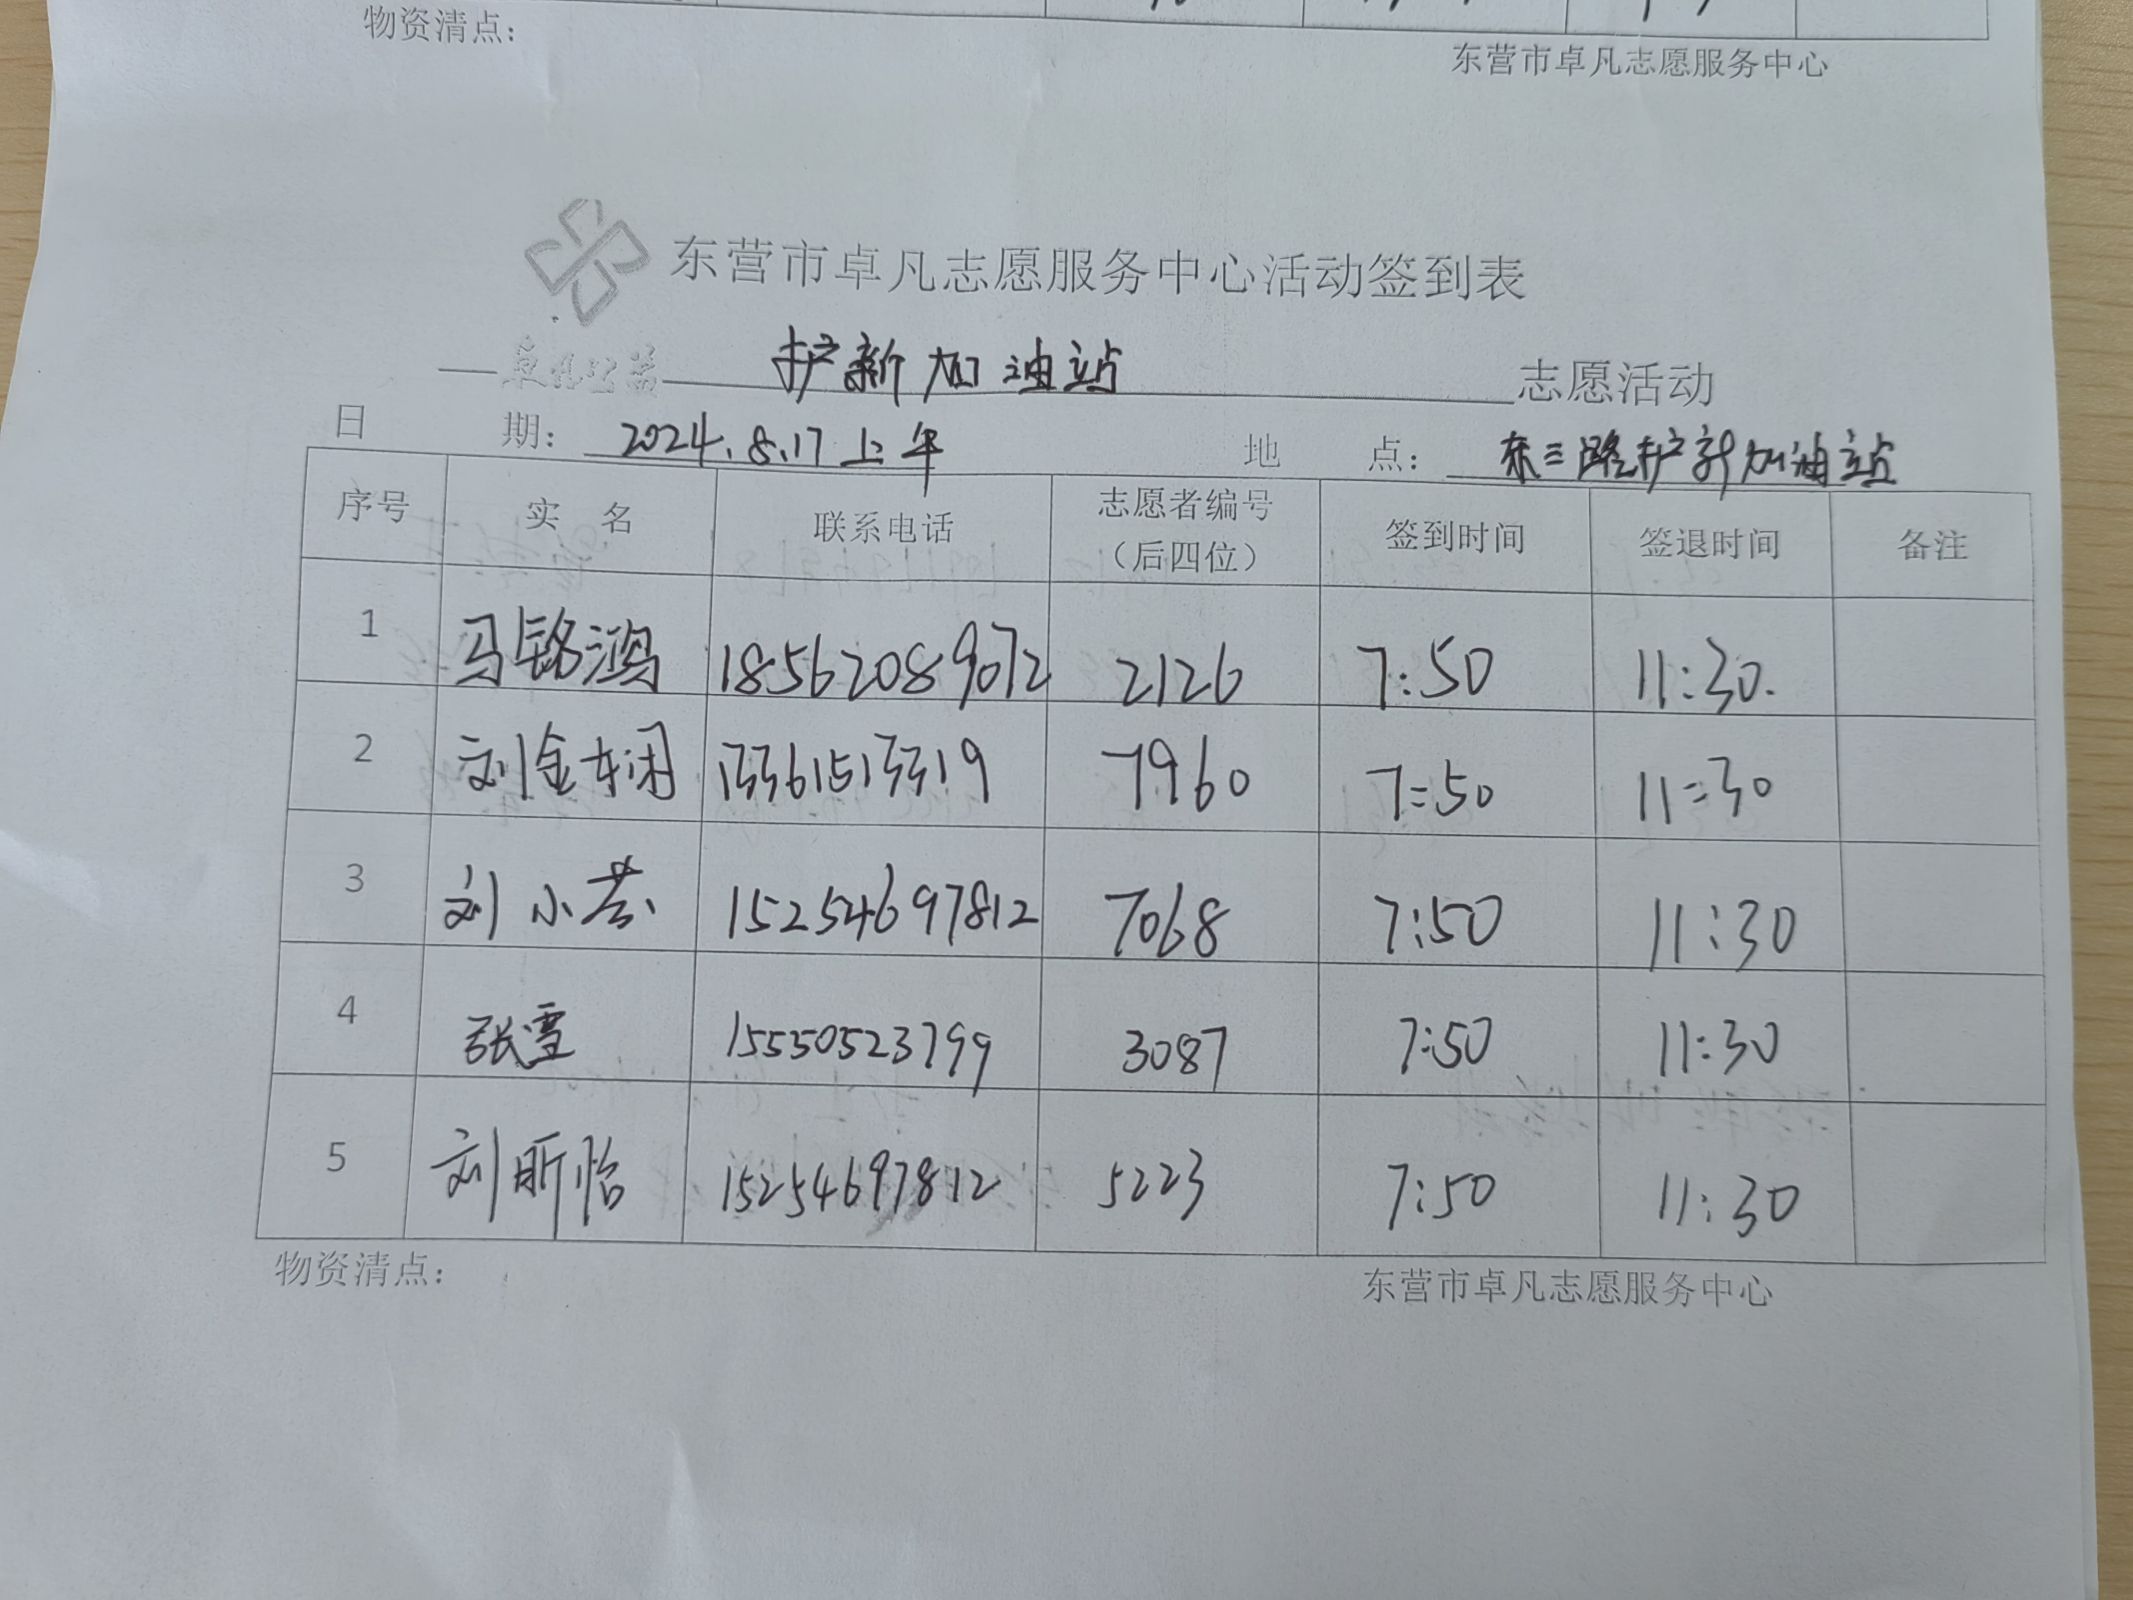 物资清点：
东营市卓凡志愿服务中心
东营市卓凡志愿服务中心活动签到表
卓凡公益 护新加油站 志愿活动
日 期： 2024.8.17上午 地 点： 东三路护新加油站
序号 实 名 联系电话 志愿者编号（后四位） 签到时间 签退时间 备注
1 马铭鸿 18562089072 2126 7:50 11:30.
2 刘金 13361513319 7960 7:50 11:30
3 刘小芸 15254697812 7068 7:50 11:30
4 张雪 15550523799 3087 7:50 11:30
5 刘昕怡 15254697812 5223 7:50 11:30
物资清点：
东营市卓凡志愿服务中心